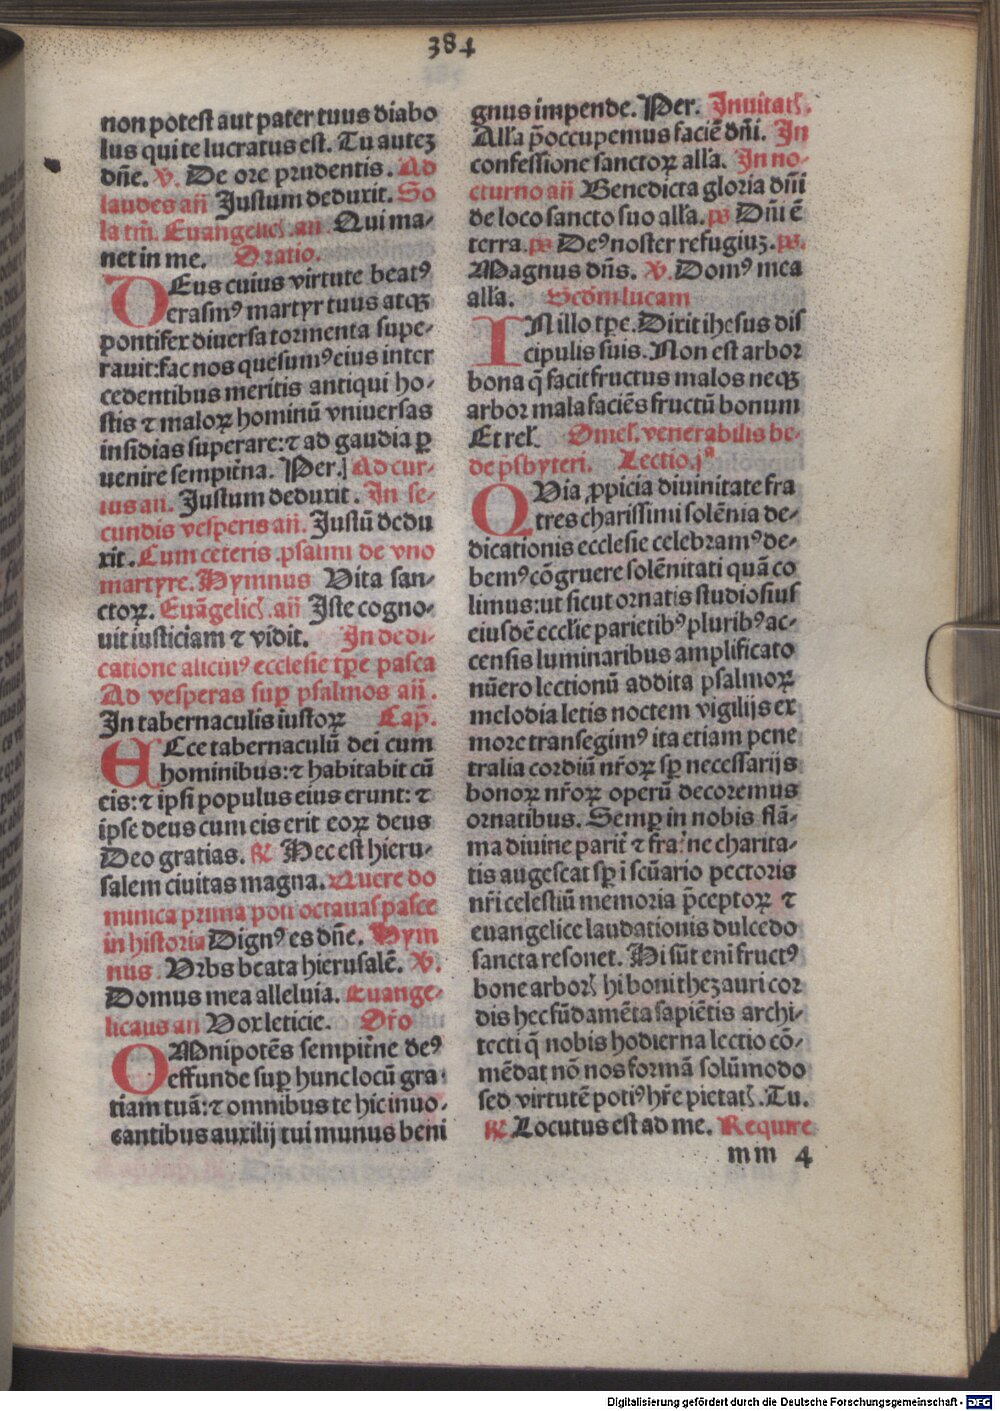 384
non potest aut pater tuus diabo
lus qui te lucratus est. Tu autez
dñe. ℣. De ore prudentis. Ad
laudes añ Justum deduxit. So
la tm̄. Euangelic̄. an̄. Qui ma-
net in me. Oratio.
DEus cuius virtute beatꝰ
erasmꝰ martyr tuus atqꝫ
pontifex diuersa tormenta supe-
rauit: fac nos quesumꝰ eius inter
cedentibus meritis antiqui ho-
stis ⁊ maloꝝ hominū vniuersas
insidias superare: ⁊ ad gaudia ꝑ
uenire sempit̄na. Per. Ad cur-
sus an̄. Justum deduxit. In se-
cundis vesperis an̄. Justū dedu
xit. Cum ceteris psalmi de vno
martyre. Hymnus Vita san-
ctoꝝ. Euāgelic̄. an̄ Iste cogno-
uit iusticiam ⁊ vidit. In dedi-
catione alicuiꝰ ecclesie tꝑe pasca
Ad vesperas suꝑ psalmos an̄.
In tabernaculis iustoꝝ Cap̄.
ECce tabernaculū dei cum
hominibus: ⁊ habitabit cū
eis: ⁊ ipsi populus eius erunt: ⁊
ipse deus cum eis erit eoꝝ deus
Deo gratias. ℟ Hec est hieru-
salem ciuitas magna. Quere do
minica prima post octauas pasce
in historia Dignꝰ es dñe. Hym
nus. Vrbs beata hierusalē. ℣.
Domus mea alleluia. Euange-
licaus an̄ Vox leticie. Or̄o
OMnipotēs sempit̄ne deꝰ
effunde suꝑ hunc locū gra-
tiam tuā: ⁊ omnibus te hic inuo-
cantibus auxilij tui munus beni
gnus impende. Per. Inuitat̄.
Alľa p̄occupemus faciē dñi. In
confessione sanctoꝝ alľa. In no-
cturno an̄ Benedicta gloria dñi
de loco sancto suo alľa. ps Dñi ē
terra. ps Deꝰ noster refugiuꝫ. ps.
Magnus dñs. ℣. Domꝰ mea
alľa. Scdm lucam
IN illo tꝑe. Dixit ihesus dis
cipulis suis. Non est arbor
bona q̄ facit fructus malos neqꝫ
arbor mala faciēs fructū bonum
Et rel̄. Omel̄. venerabilis be-
de p̄sbyteri. Lectio. jª
QVia ꝓpicia diuinitate fra
tres charissimi solēnia de-
dicationis ecclesie celebramꝰ de-
bemꝰ cōgruere solēnitati quā co
limus: ut sicut ornatis studiosius
eiusdē ecclīe parietibꝰ pluribꝰ ac-
censis luminaribus amplificato
nūero lectionū addita psalmoꝝ
melodia letis noctem vigilijs ex
more transegimꝰ ita etiam pene
tralia cordiū nr̄oꝝ sꝑ necessarijs
bonoꝝ nr̄oꝝ operū decoremus
ornatibus. Semꝑ in nobis flā-
ma diuine parit̄ ⁊ frat̄ne charita-
tis augescat sꝑ i scūario pectoris
nr̄i celestiū memoria p̄ceptoꝝ ⁊
euangelice laudationis dulcedo
sancta resonet. Hi sūt eni fructꝰ
bone arbor̄ hi boni thezauri cor
dis hec fūdamēta sapiētis archi-
tecti q̄ nobis hodierna lectio cō-
mēdat nō nos formā solūmodo
sed virtutē potiꝰ hr̄e pietat̄. Tu.
℟ Locutus est ad me. Require
mm 4
Digitalisierung gefördert durch die Deutsche Forschungsgemeinschaft - DFG